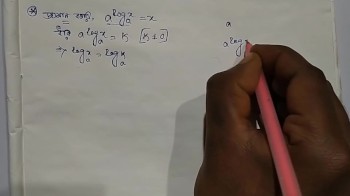 প্রমাণ করি, a^log_a x = x
ধরি, a^log_a x = K [K ≠ 0]
বা, log_a x = log_a k
a
a^log x